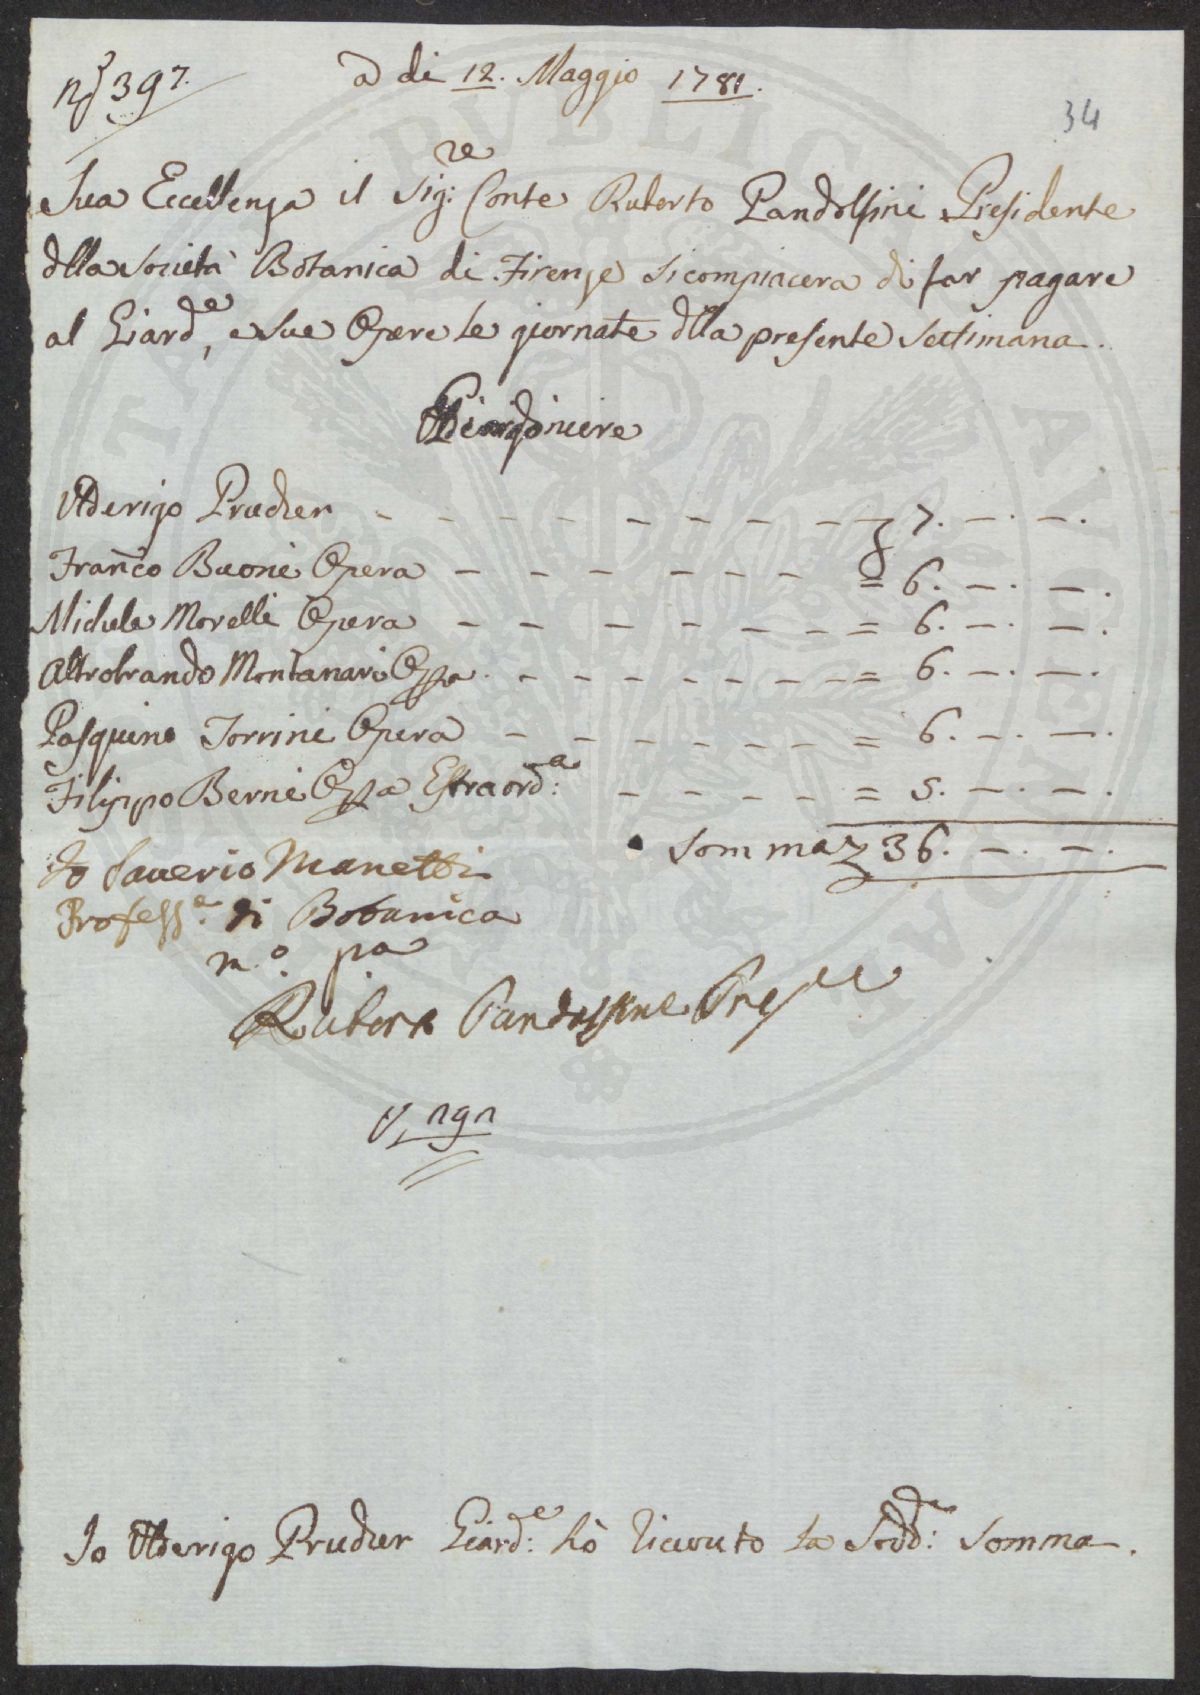 N.º 397.
a di 12. Maggio 1781.
34
Sua Eccellenza il Sig:re Conte Ruberto Pandolfini Presidente
dlla Società Botanica di Firenze si compiacera di far pagare
al Giard:e, e sue Opere le giornate dlla presente Settimana.
Giardiniere
Ulderigo Prucher - - - - - - - - 7. -. -.
Franco Buoni Opera - - - - - - - = 6. -. -.
Michele Morelli Opera - - - - - - = 6. -. -.
Altrobrando Montanari Oppa - - - - - - = 6. -. -.
Pasquino Torrini Opera - - - - - - = 6. -. -.
Filippo Berni Oppa Estraord:a - - - - = 5. -. -.
Somma 36. -. -.
Io Saverio Manetti
Profess.e di Botanica
m.o pa
Ruberto Pandolfini Pres.te
PUBLICA
Io Ulderigo Prucher Giard:e hò riceuuto la Sudd:a Somma.